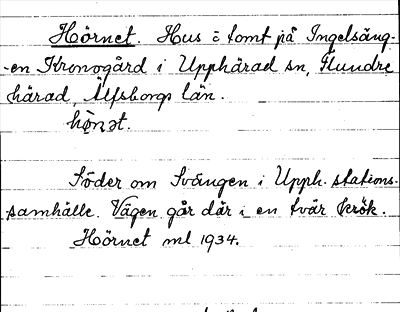 Hörnet. Hus å tomt på Ingelsäng-
-en Kronogård i Upphärad sn, Flundre
härad, Älfsborgs län.
hö̀nət.
Söder om Svängen i Upph. stations-
samhälle. Vägen går där i en tvär krök.
Hörnet ml 1934.